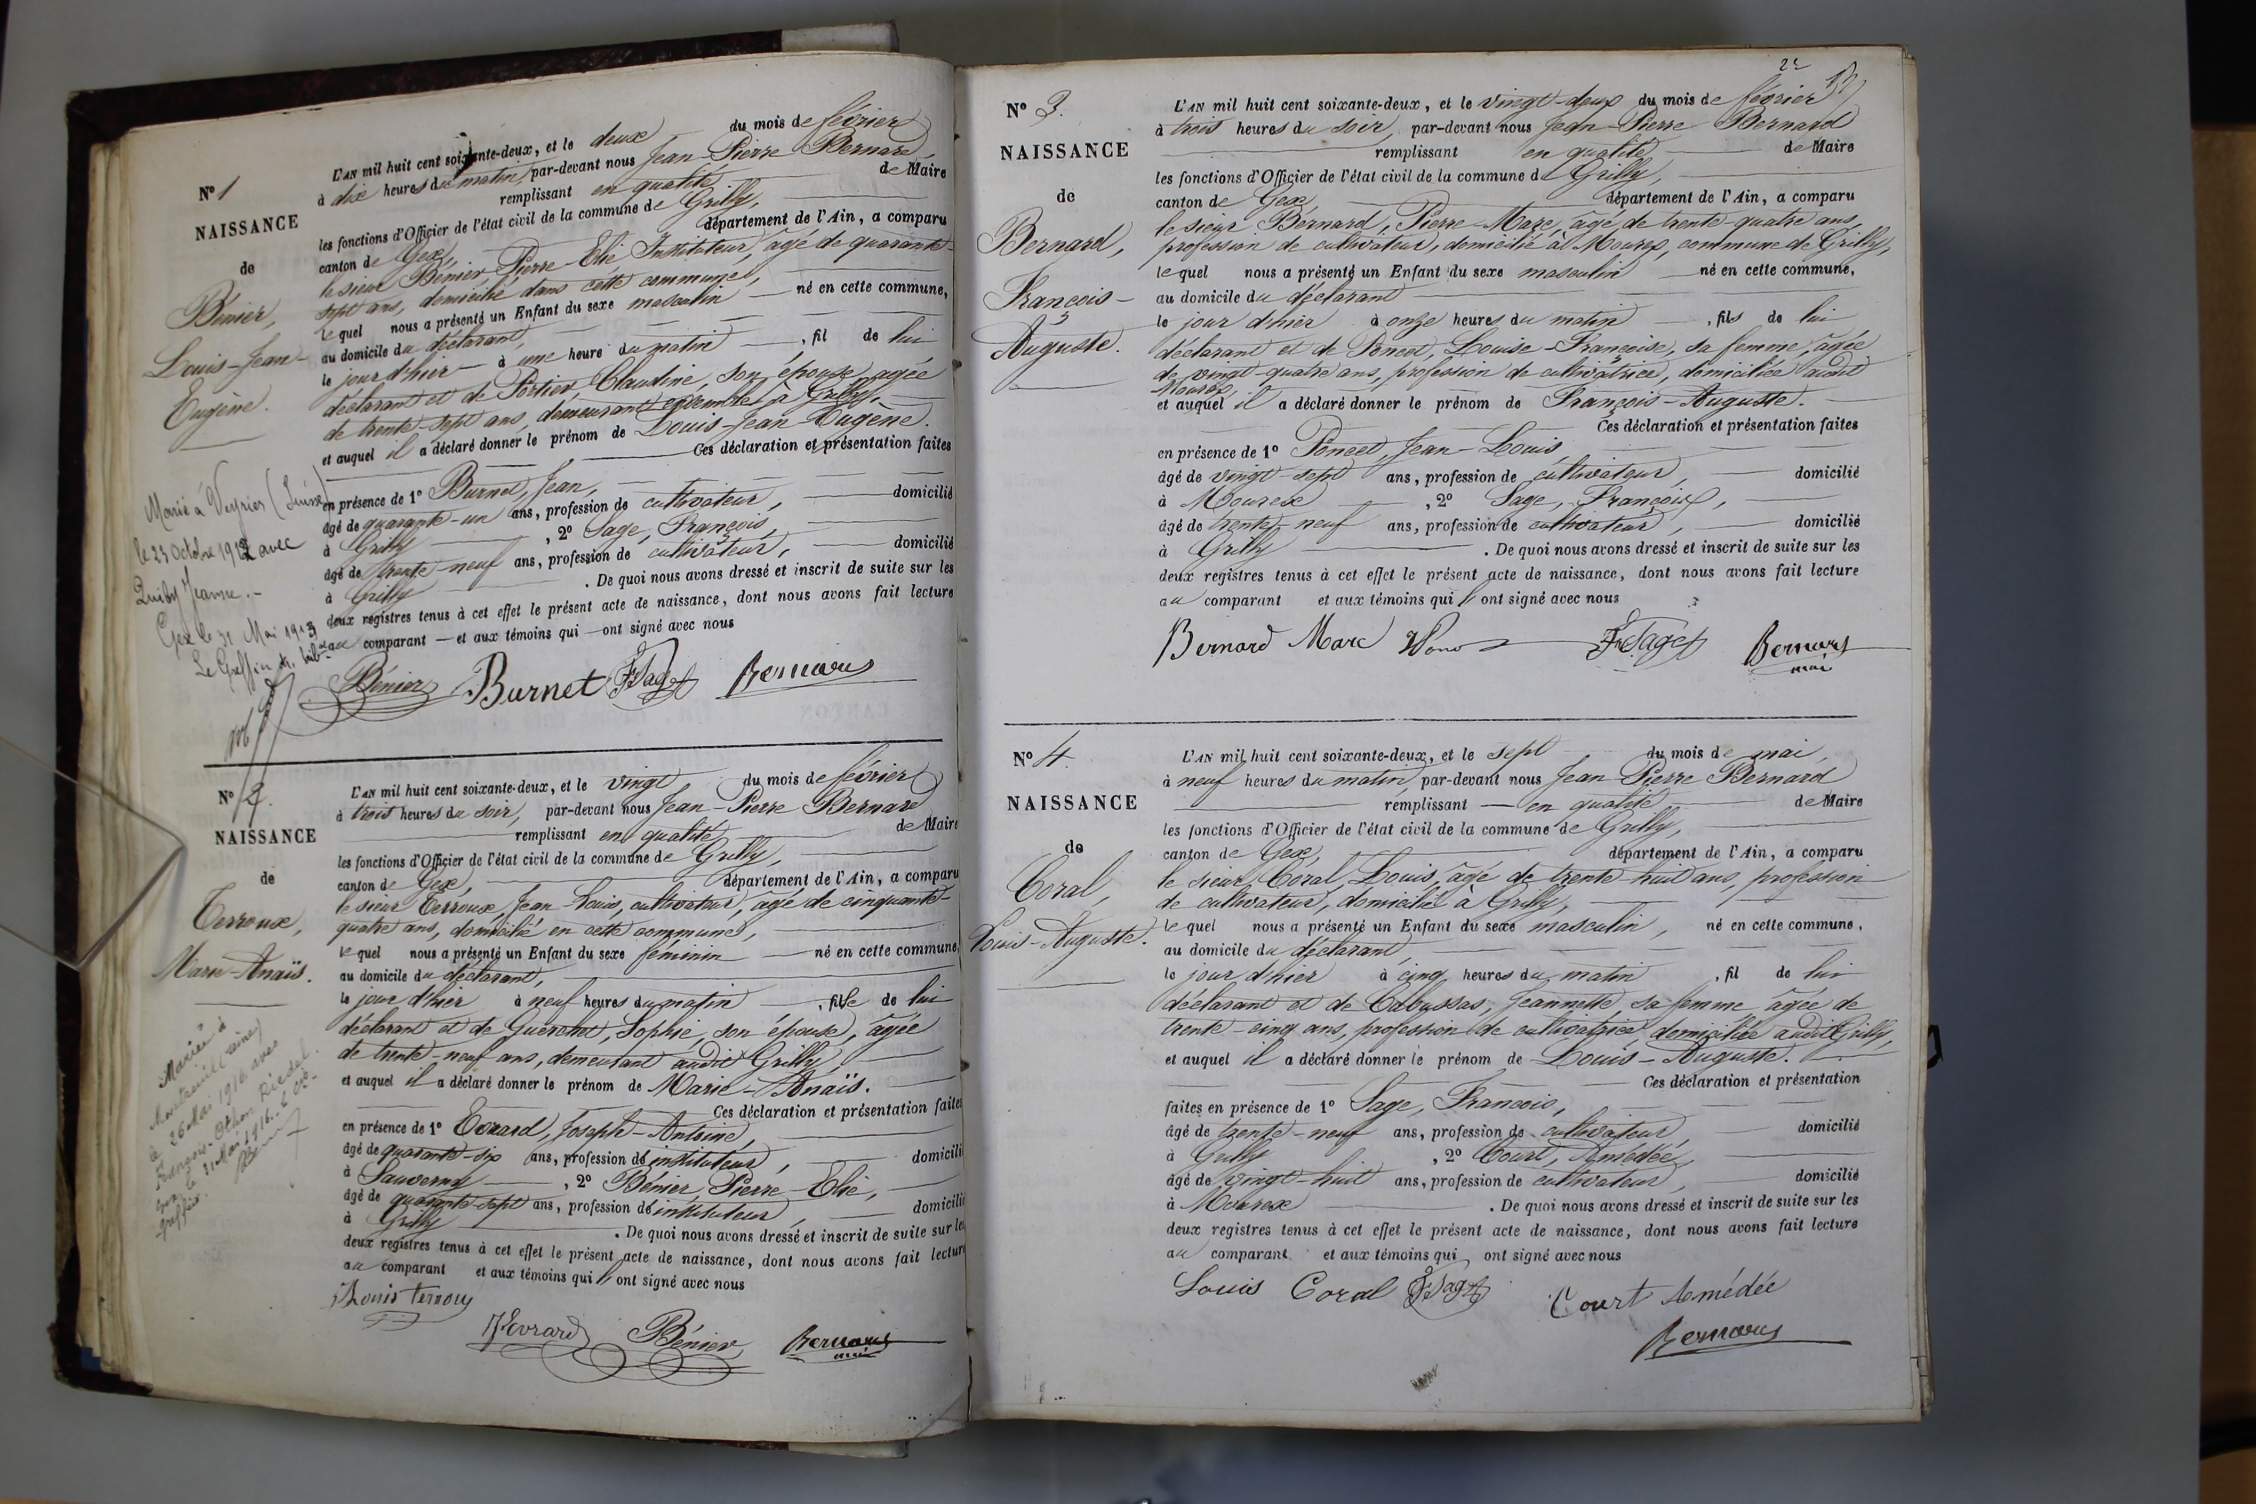 N° 1
NAISSANCE
de
Bénier,
Louis-Jean-
Eugène.
Marié à Veyrier (Suisse)
le 23 Octobre 1912 avec
Jeanne.-
Gex le 31 Mai 1913
L'AN mil huit cent soixante-deux, et le deux du mois de février
à dix heures du matin, par-devant nous Jean-Pierre Bernard,
remplissant en qualité de Maire
les fonctions d'Officier de l'état civil de la commune de Grilly,
canton de Gex, département de l'Ain, a comparu
le sieur Bénier Pierre-Elie Instituteur, âgé de quarante-
sept ans, domicilié dans cette commune,
lequel nous a présenté un Enfant du sexe masculin né en cette commune,
au domicile du déclarant,
le jour d'hier à une heure du matin, fil de lui
déclarant et de Portier, Claudine, son épouse, agée
de trente-sept ans, demeurant ensemble à Grilly,
et auquel il a déclaré donner le prénom de Louis-Jean-Eugène.
Ces déclaration et présentation faites
en présence de 1° Burnet, Jean,
âgé de quarante-un ans, profession de cultivateur, domicilié
à Grilly, 2° Sage, François,
âgé de trente-neuf ans, profession de cultivateur, domicilié
à Grilly. De quoi nous avons dressé et inscrit de suite sur les
deux registres tenus à cet effet le présent acte de naissance, dont nous avons fait lecture
au comparant et aux témoins qui ont signé avec nous
Bénier Burnet F Sage Bernard
N° 2.
NAISSANCE
de
Terroux,
Marie-Anaïs.
Mariée à
Montreuil (Seine)
le 26 Mai 1916 avec
François-Othon Riedel.
Gex, le 31 Mai 1916. Le
greffier.
L'AN mil huit cent soixante-deux, et le vingt du mois de février
à trois heures du soir, par-devant nous Jean-Pierre Bernard
remplissant en qualité de Maire
les fonctions d'Officier de l'état civil de la commune de Grilly,
canton de Gex, département de l'Ain, a comparu
le sieur Terroux, Jean-Louis, cultivateur, agé de cinquante-
quatre ans, domicilié en cette commune,
lequel nous a présenté un Enfant du sexe féminin né en cette commune,
au domicile du déclarant,
le jour d'hier à neuf heures du matin, fille de lui
déclarant et de Guerchet, Sophie, son épouse, âgée
de trente-neuf ans, demeurant audit Grilly,
et auquel il a déclaré donner le prénom de Marie-Anaïs.
Ces déclaration et présentation faites
en présence de 1° Evrard, Joseph-Antoine,
âgé de quarante-six ans, profession d'instituteur, domicilié
à Sauverny, 2° Bénier, Pierre-Elie,
âgé de quarante-sept ans, profession d'instituteur, domicilié
à Grilly. De quoi nous avons dressé et inscrit de suite sur les
deux registres tenus à cet effet le présent acte de naissance, dont nous avons fait lecture
au comparant et aux témoins qui ont signé avec nous
Louis terroux
Evrard Bénier Bernard
mai
22
N° 3.
NAISSANCE
de
Bernard,
François-
Auguste.
L'AN mil huit cent soixante-deux, et le vingt-deux du mois de février
à trois heures du soir, par-devant nous Jean-Pierre Bernard
remplissant en qualité de Maire
les fonctions d'Officier de l'état civil de la commune de Grilly,
canton de Gex, département de l'Ain, a comparu
le sieur Bernard, Pierre-Marc, âgé de trente-quatre ans,
profession de cultivateur, domicilié à Mourex, commune de Grilly,
lequel nous a présenté un Enfant du sexe masculin né en cette commune,
au domicile du déclarant
le jour d'hier à onze heures du matin, fils de lui
déclarant et de Poncet, Louise-Françoise, sa femme, âgée
de vingt-quatre ans, profession de cultivatrice, domiciliée audit
Mourex,
et auquel il a déclaré donner le prénom de François-Auguste.
Ces déclaration et présentation faites
en présence de 1° Poncet, Jean-Louis
âgé de vingt-sept ans, profession de cultivateur, domicilié
à Mourex, 2° Sage, François,
âgé de trente-neuf ans, profession de cultivateur, domicilié
à Grilly. De quoi nous avons dressé et inscrit de suite sur les
deux registres tenus à cet effet le présent acte de naissance, dont nous avons fait lecture
au comparant et aux témoins qui ont signé avec nous
Bernard Marc F Sage Bernard
mai
N° 4.
NAISSANCE
de
Coral,
Louis-Auguste.
L'AN mil huit cent soixante-deux, et le sept du mois de mai,
à neuf heures du matin, par-devant nous Jean-Pierre Bernard
remplissant en qualité de Maire
les fonctions d'Officier de l'état civil de la commune de Grilly,
canton de Gex, département de l'Ain, a comparu
le sieur Coral, Louis, âgé de trente-huit ans, profession
de cultivateur, domicilié à Grilly,
lequel nous a présenté un Enfant du sexe masculin, né en cette commune,
au domicile du déclarant,
le jour d'hier à cinq heures du matin, fil de lui
déclarant et de Cabussas, Jeannette, sa femme, âgée de
trente-cinq ans, profession de cultivatrice, domiciliée audit Grilly,
et auquel il a déclaré donner le prénom de Louis-Auguste.
Ces déclaration et présentation
faites en présence de 1° Sage, François,
âgé de trente-neuf ans, profession de cultivateur, domicilié
à Grilly, 2° Court, Amédée,
âgé de vingt-huit ans, profession de cultivateur, domicilié
à Mourex. De quoi nous avons dressé et inscrit de suite sur les
deux registres tenus à cet effet le présent acte de naissance, dont nous avons fait lecture
au comparant et aux témoins qui ont signé avec nous
Louis Coral F Sage Court Amédée
Bernard